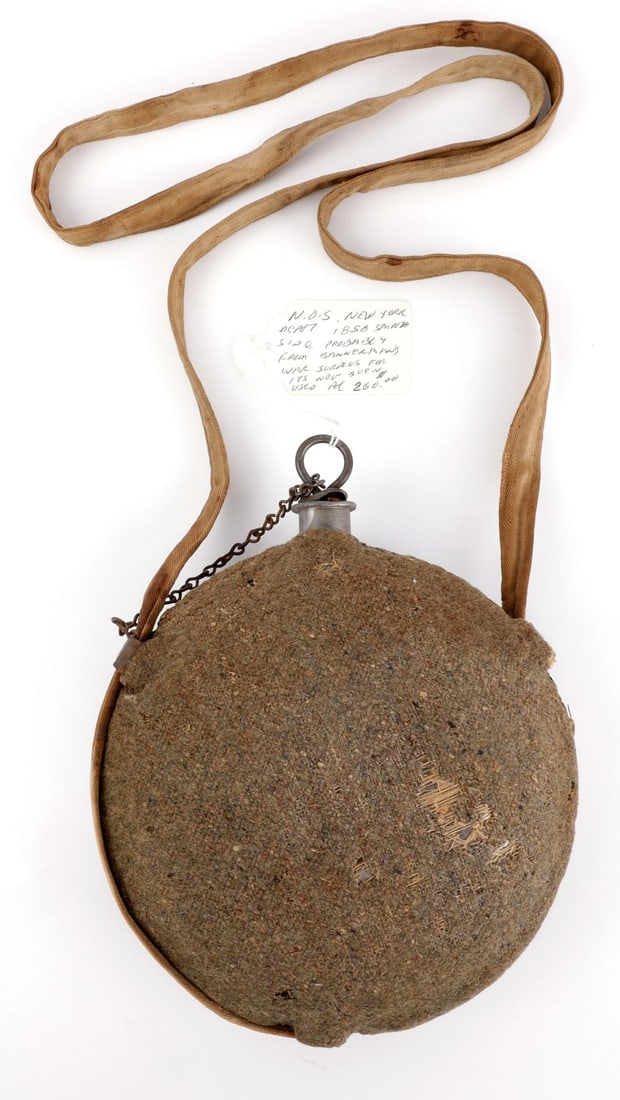 N.D.S. NEW YORK
DEPOT 1858 SMOOTH
SIDE PROBABLY
FROM BANNERMANS
WAR SURPLUS FOR
ITS NOT BEEN
USED $260.00